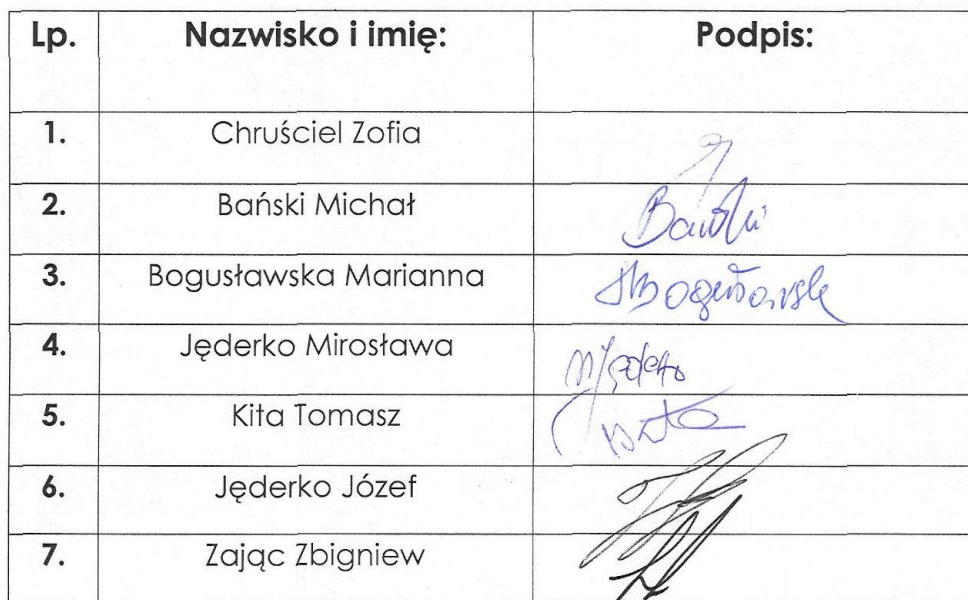 Lp. Nazwisko i imię: Podpis:
1. Chruściel Zofia
2. Bański Michał Bański
3. Bogusławska Marianna MBogusławska
4. Jęderko Mirosława MJęderko
5. Kita Tomasz Kita
6. Jęderko Józef
7. Zając Zbigniew